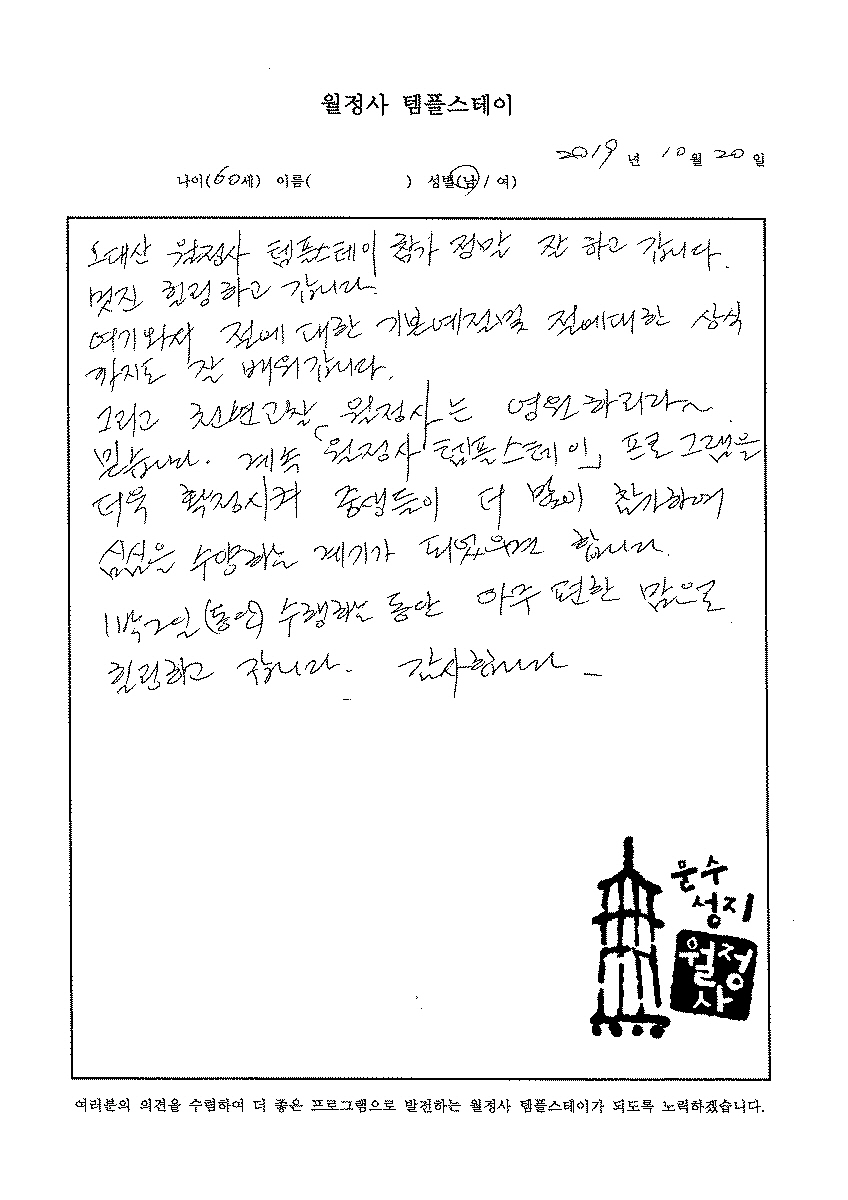 월정사 템플스테이
2019 년 10 월 20 일
나이(60세) 이름( ) 성별(남/여)
오대산 월정사 템플스테이 참가 정말 잘 하고 갑니다.
멋진 힐링하고 갑니다.
여기와서 절에 대한 기본예절및 절에대한 상식
까지도 잘 배워갑니다.
그리고 천년고찰 월정사는 영원하리라~
믿습니다. 계속 「월정사 템플스테이」 프로그램을
더욱 확장시켜 중생들이 더 많이 참가하여
심신을 수양하는 계기가 되었으면 합니다.
1박2일 수행하는 동안 아주 편한 맘으로
힐링하고 갑니다. 감사합니다
문수
성지
월정
사
여러분의 의견을 수렴하여 더 좋은 프로그램으로 발전하는 월정사 템플스테이가 되도록 노력하겠습니다.